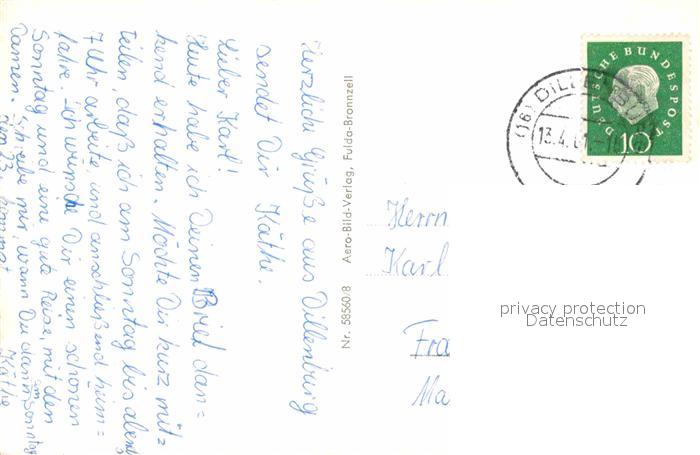 Herzliche Grüße aus Dillenburg
sendet Dir Käthe.
Lieber Karl!
Heute habe ich Deinen Brief dan=
kend erhalten. Möchte Dir kurz mit=
teilen, daß ich am Sonntag bis abend
7 Uhr arbeite, und anschließend heim=
fahre. Ich wünsche Dir einen schönen
Sonntag und eine gute Reise, mit den
Damen. Schreibe mir, wann Du dann am Sonntag
den 23. kommst. Käthe
Nr. 58560/8 Aero-Bild-Verlag, Fulda-Bronnzell
DEUTSCHE BUNDESPOST
10
(16) DILLENBURG
13.4.61
Herrn
Karl
Fra
Ma
privacy protection
Datenschutz